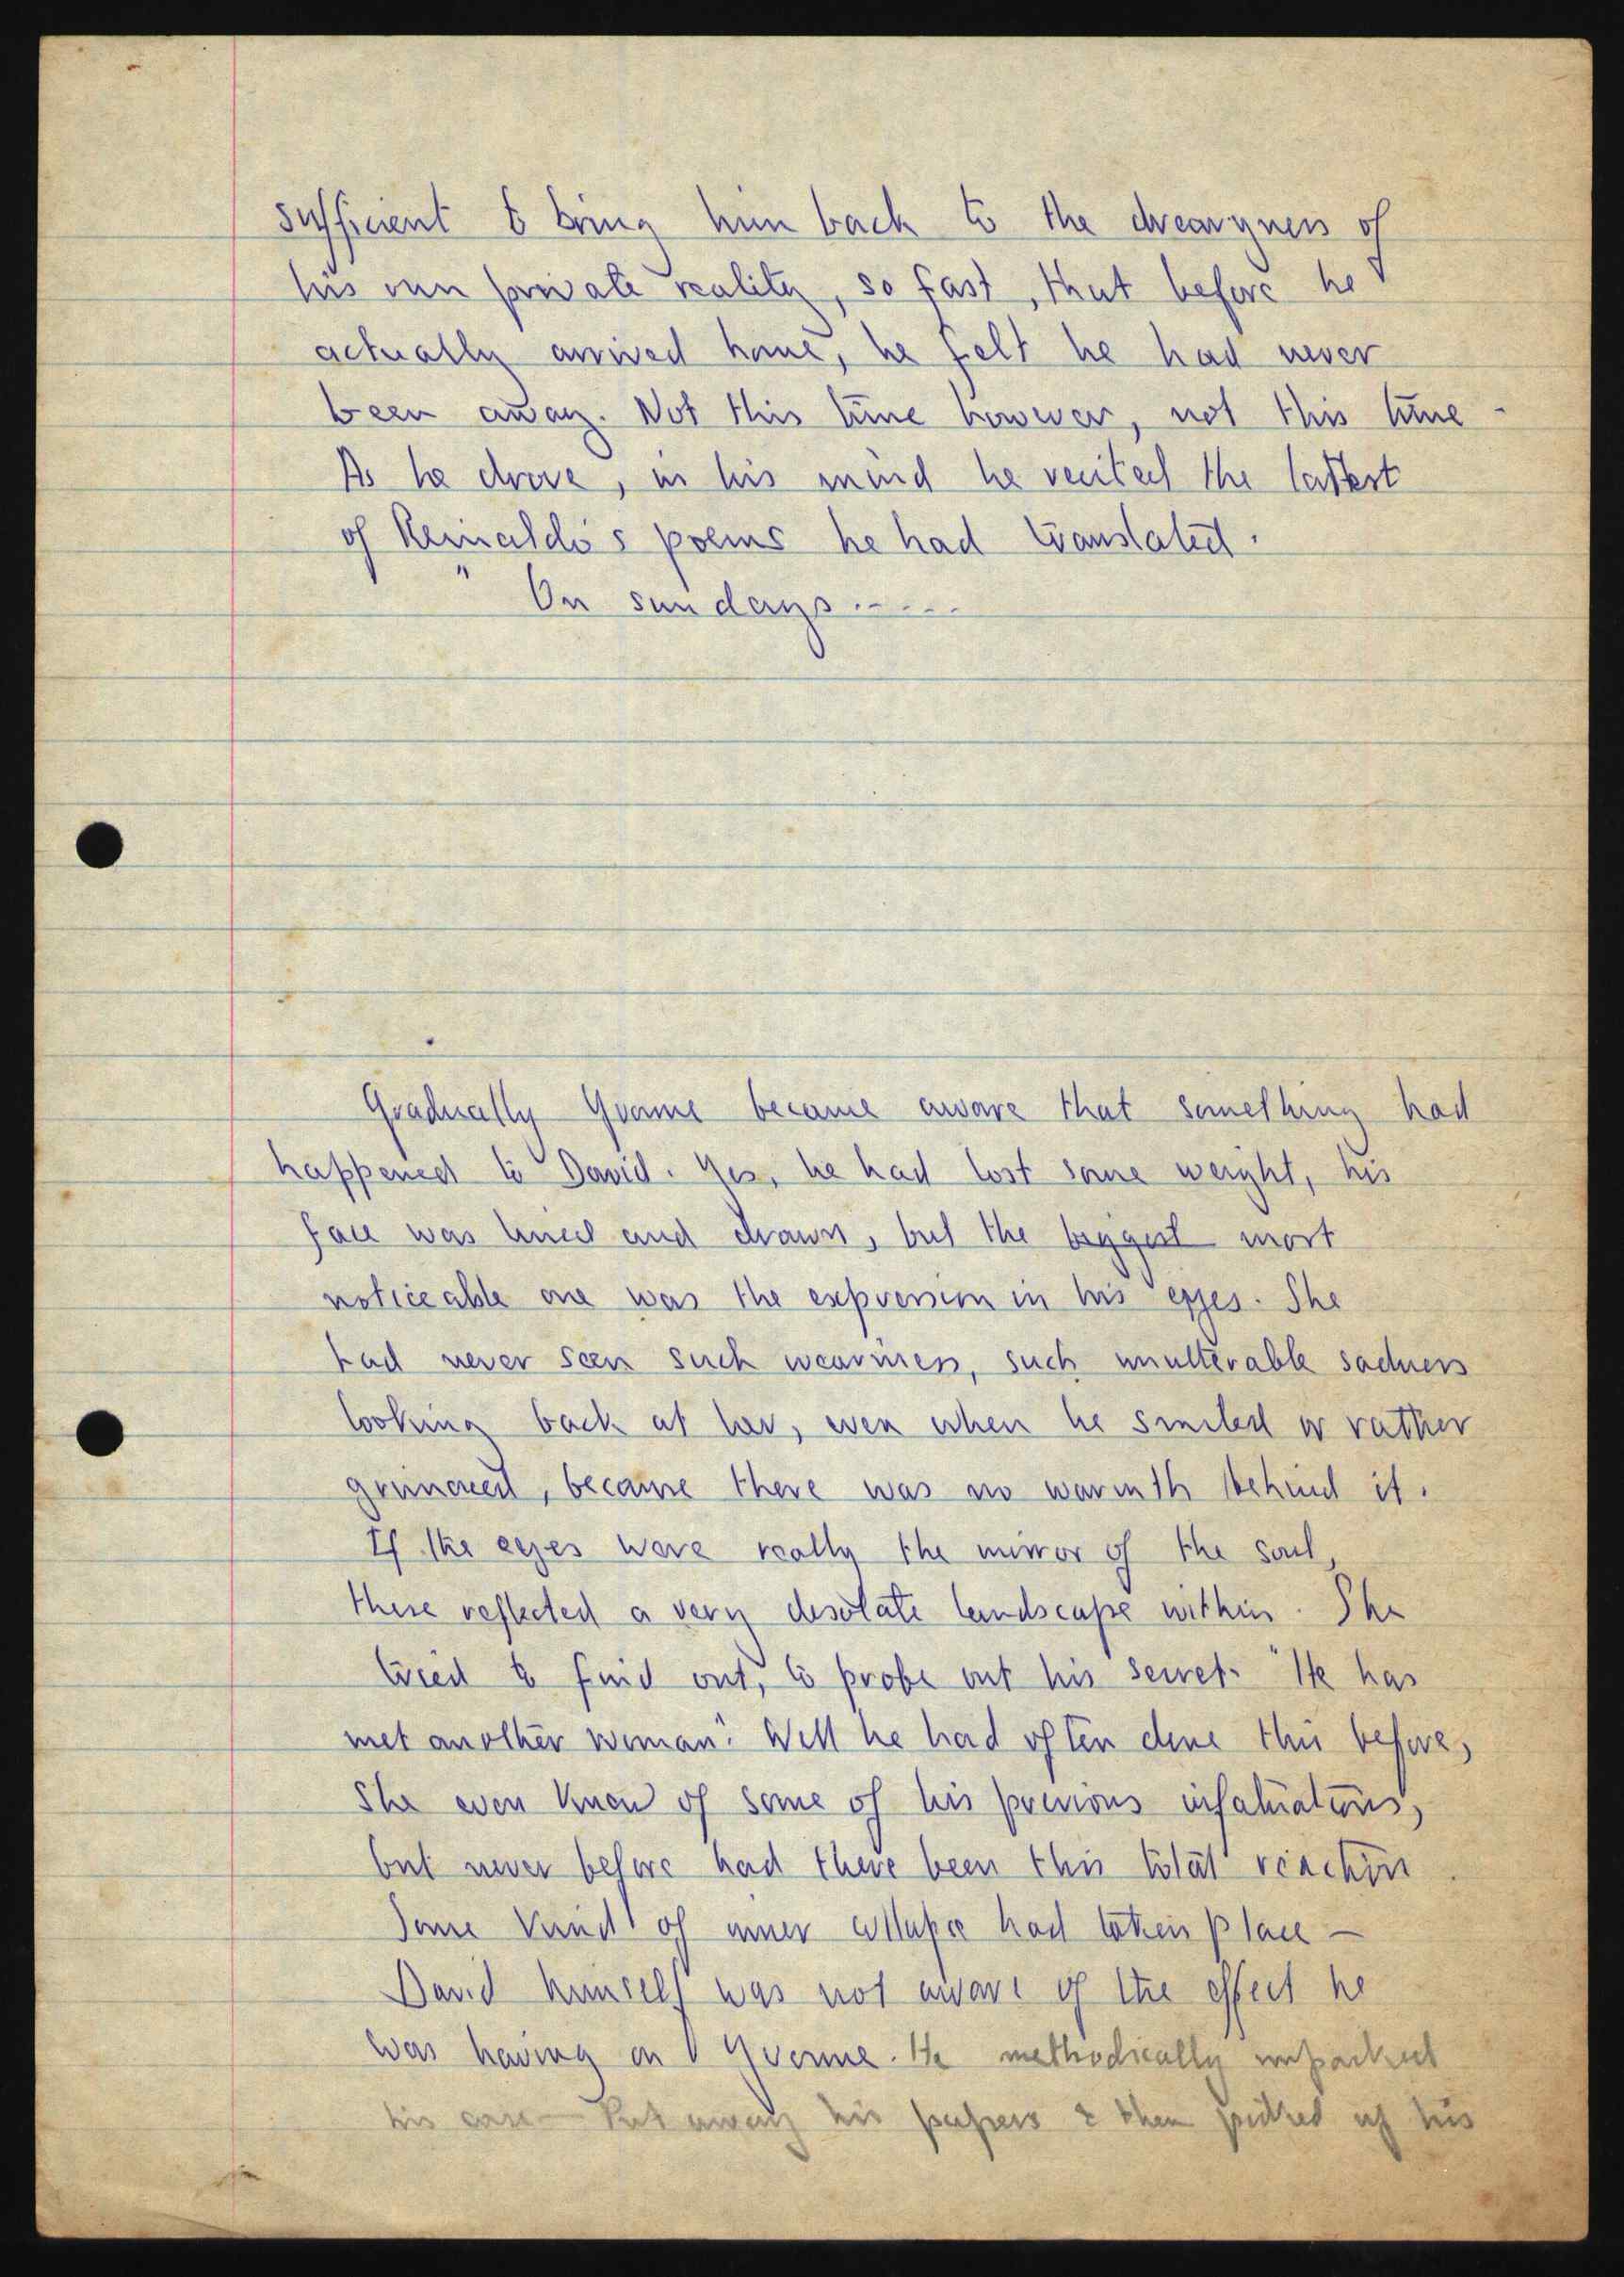 sufficient to bring him back to the drearyness of
his own private reality, so fast, that before he
actually arrived home, he felt he had never
been away. Not this time however, not this time -
As he drove, in his mind he recited the lattest
of Reinaldo's poems he had translated.
" On sundays.....
Gradually Yvonne became aware that something had
happened to David. Yes, he had lost some weight, his
face was lined and drawn, but the biggest most
noticeable one was the expression in his eyes. She
had never seen such weariness, such unutterable sadness
looking back at her, even when he smiled or rather
grimaced, because there was no warmth behind it.
If the eyes were really the mirror of the soul,
these reflected a very desolate landscape within. She
tried to find out, to probe out his secret. "He has
met another woman". Well he had often done this before,
She even knew of some of his previous infatuations,
but never before had there been this total reaction.
Some kind of inner collapse had taken place —
David himself was not aware of the effect he
was having on Yvonne. He methodically unpacked
his case — Put away his papers & then picked up his